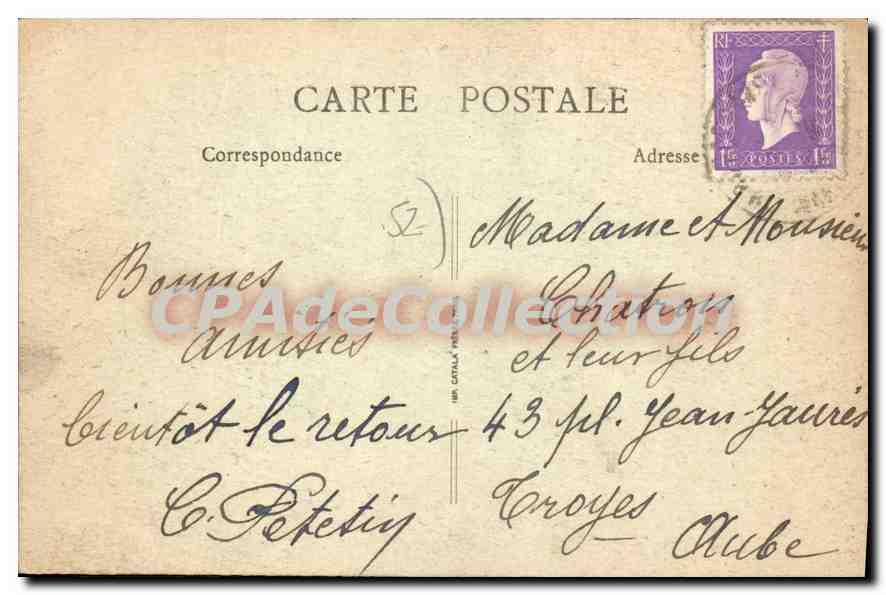 CARTE POSTALE
Correspondance
Adresse
RF
1F50 POSTES 1F50
52
Bonnes
Amitiés
bientôt le retour
C. Petetin
IMP. CATALA FRÈRES
Madame et Monsieur
Chatron
et leur fils
43 pl. Jean-Jaurès
Troyes
Aube
CPAdeCollection